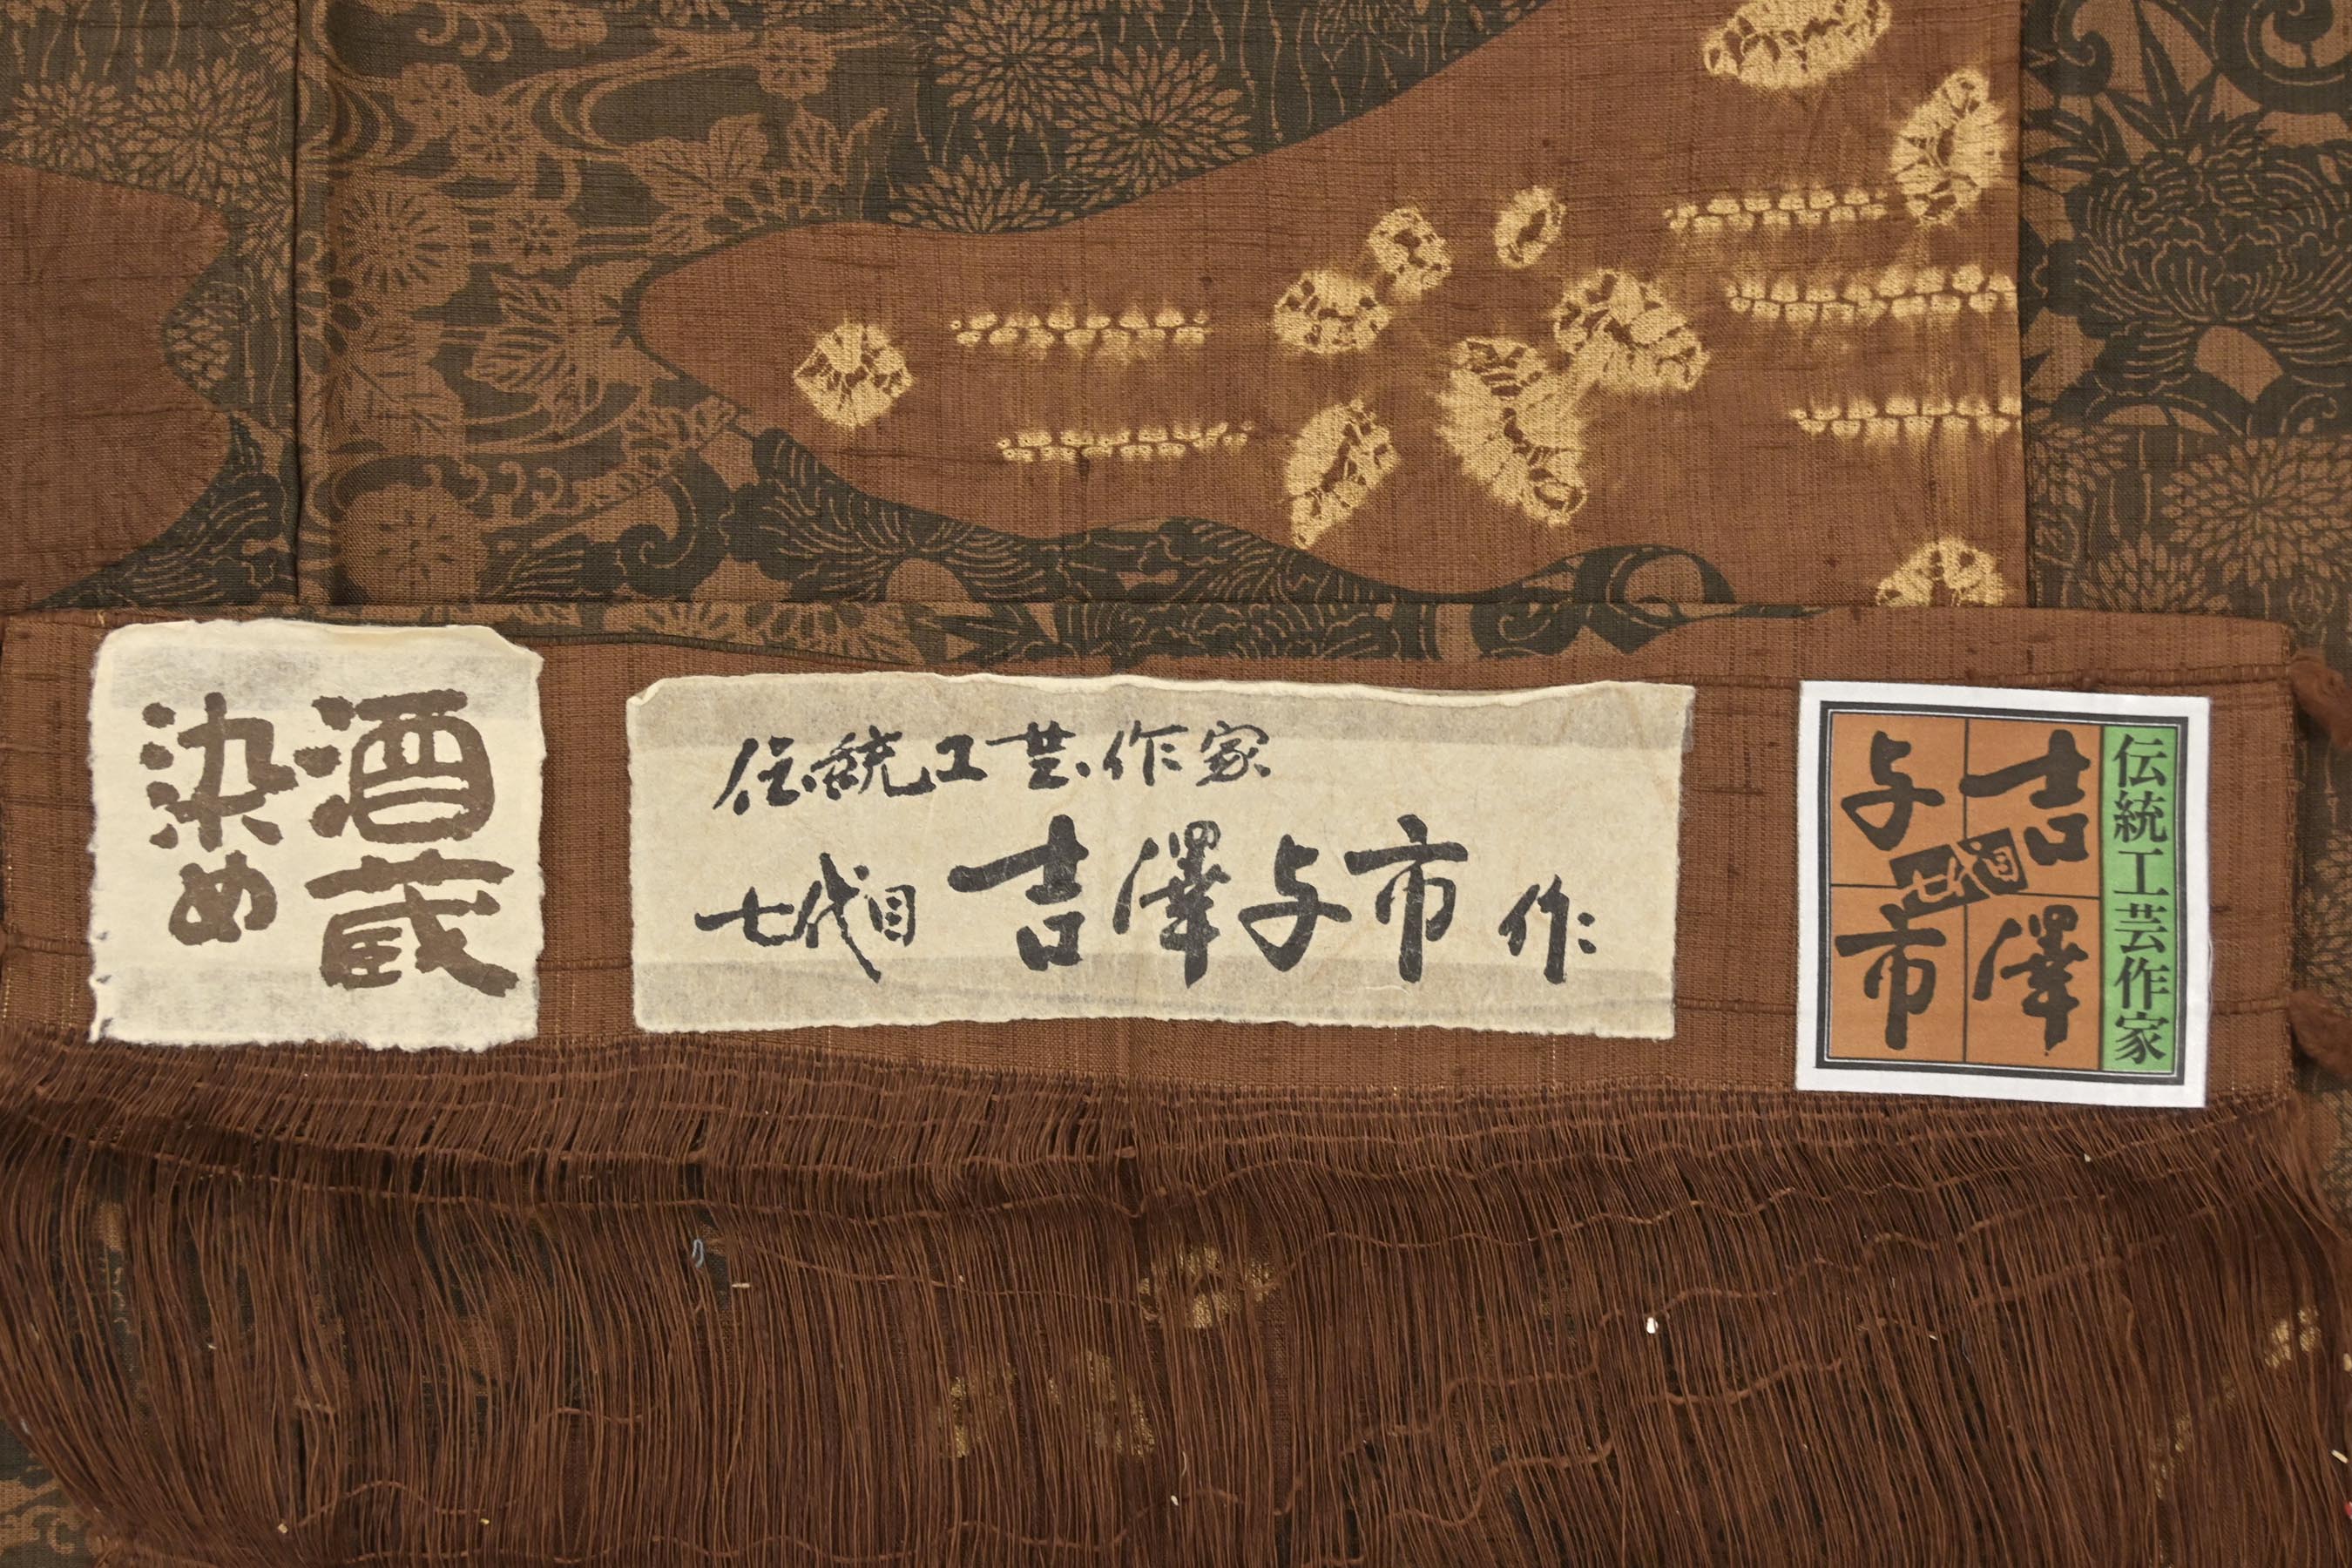 酒蔵
染め
伝統工芸作家
七代目 吉澤与市 作
伝統工芸作家
吉澤
与市
七代目